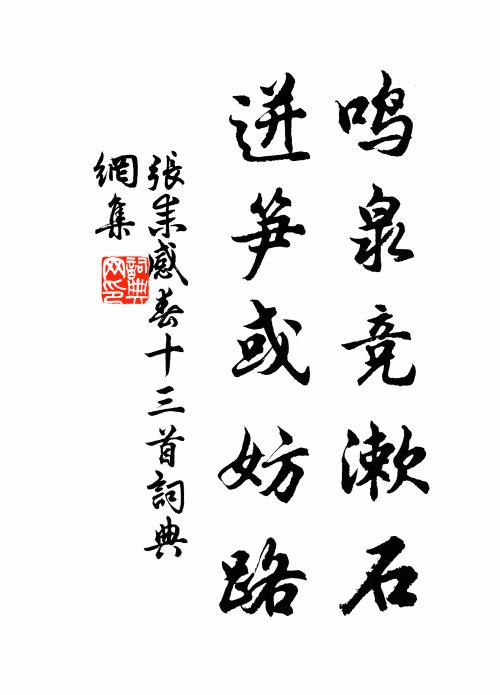 鸣泉竞漱石
迸笋或妨路
張耒感春十三首詞典
網集
詞典网印